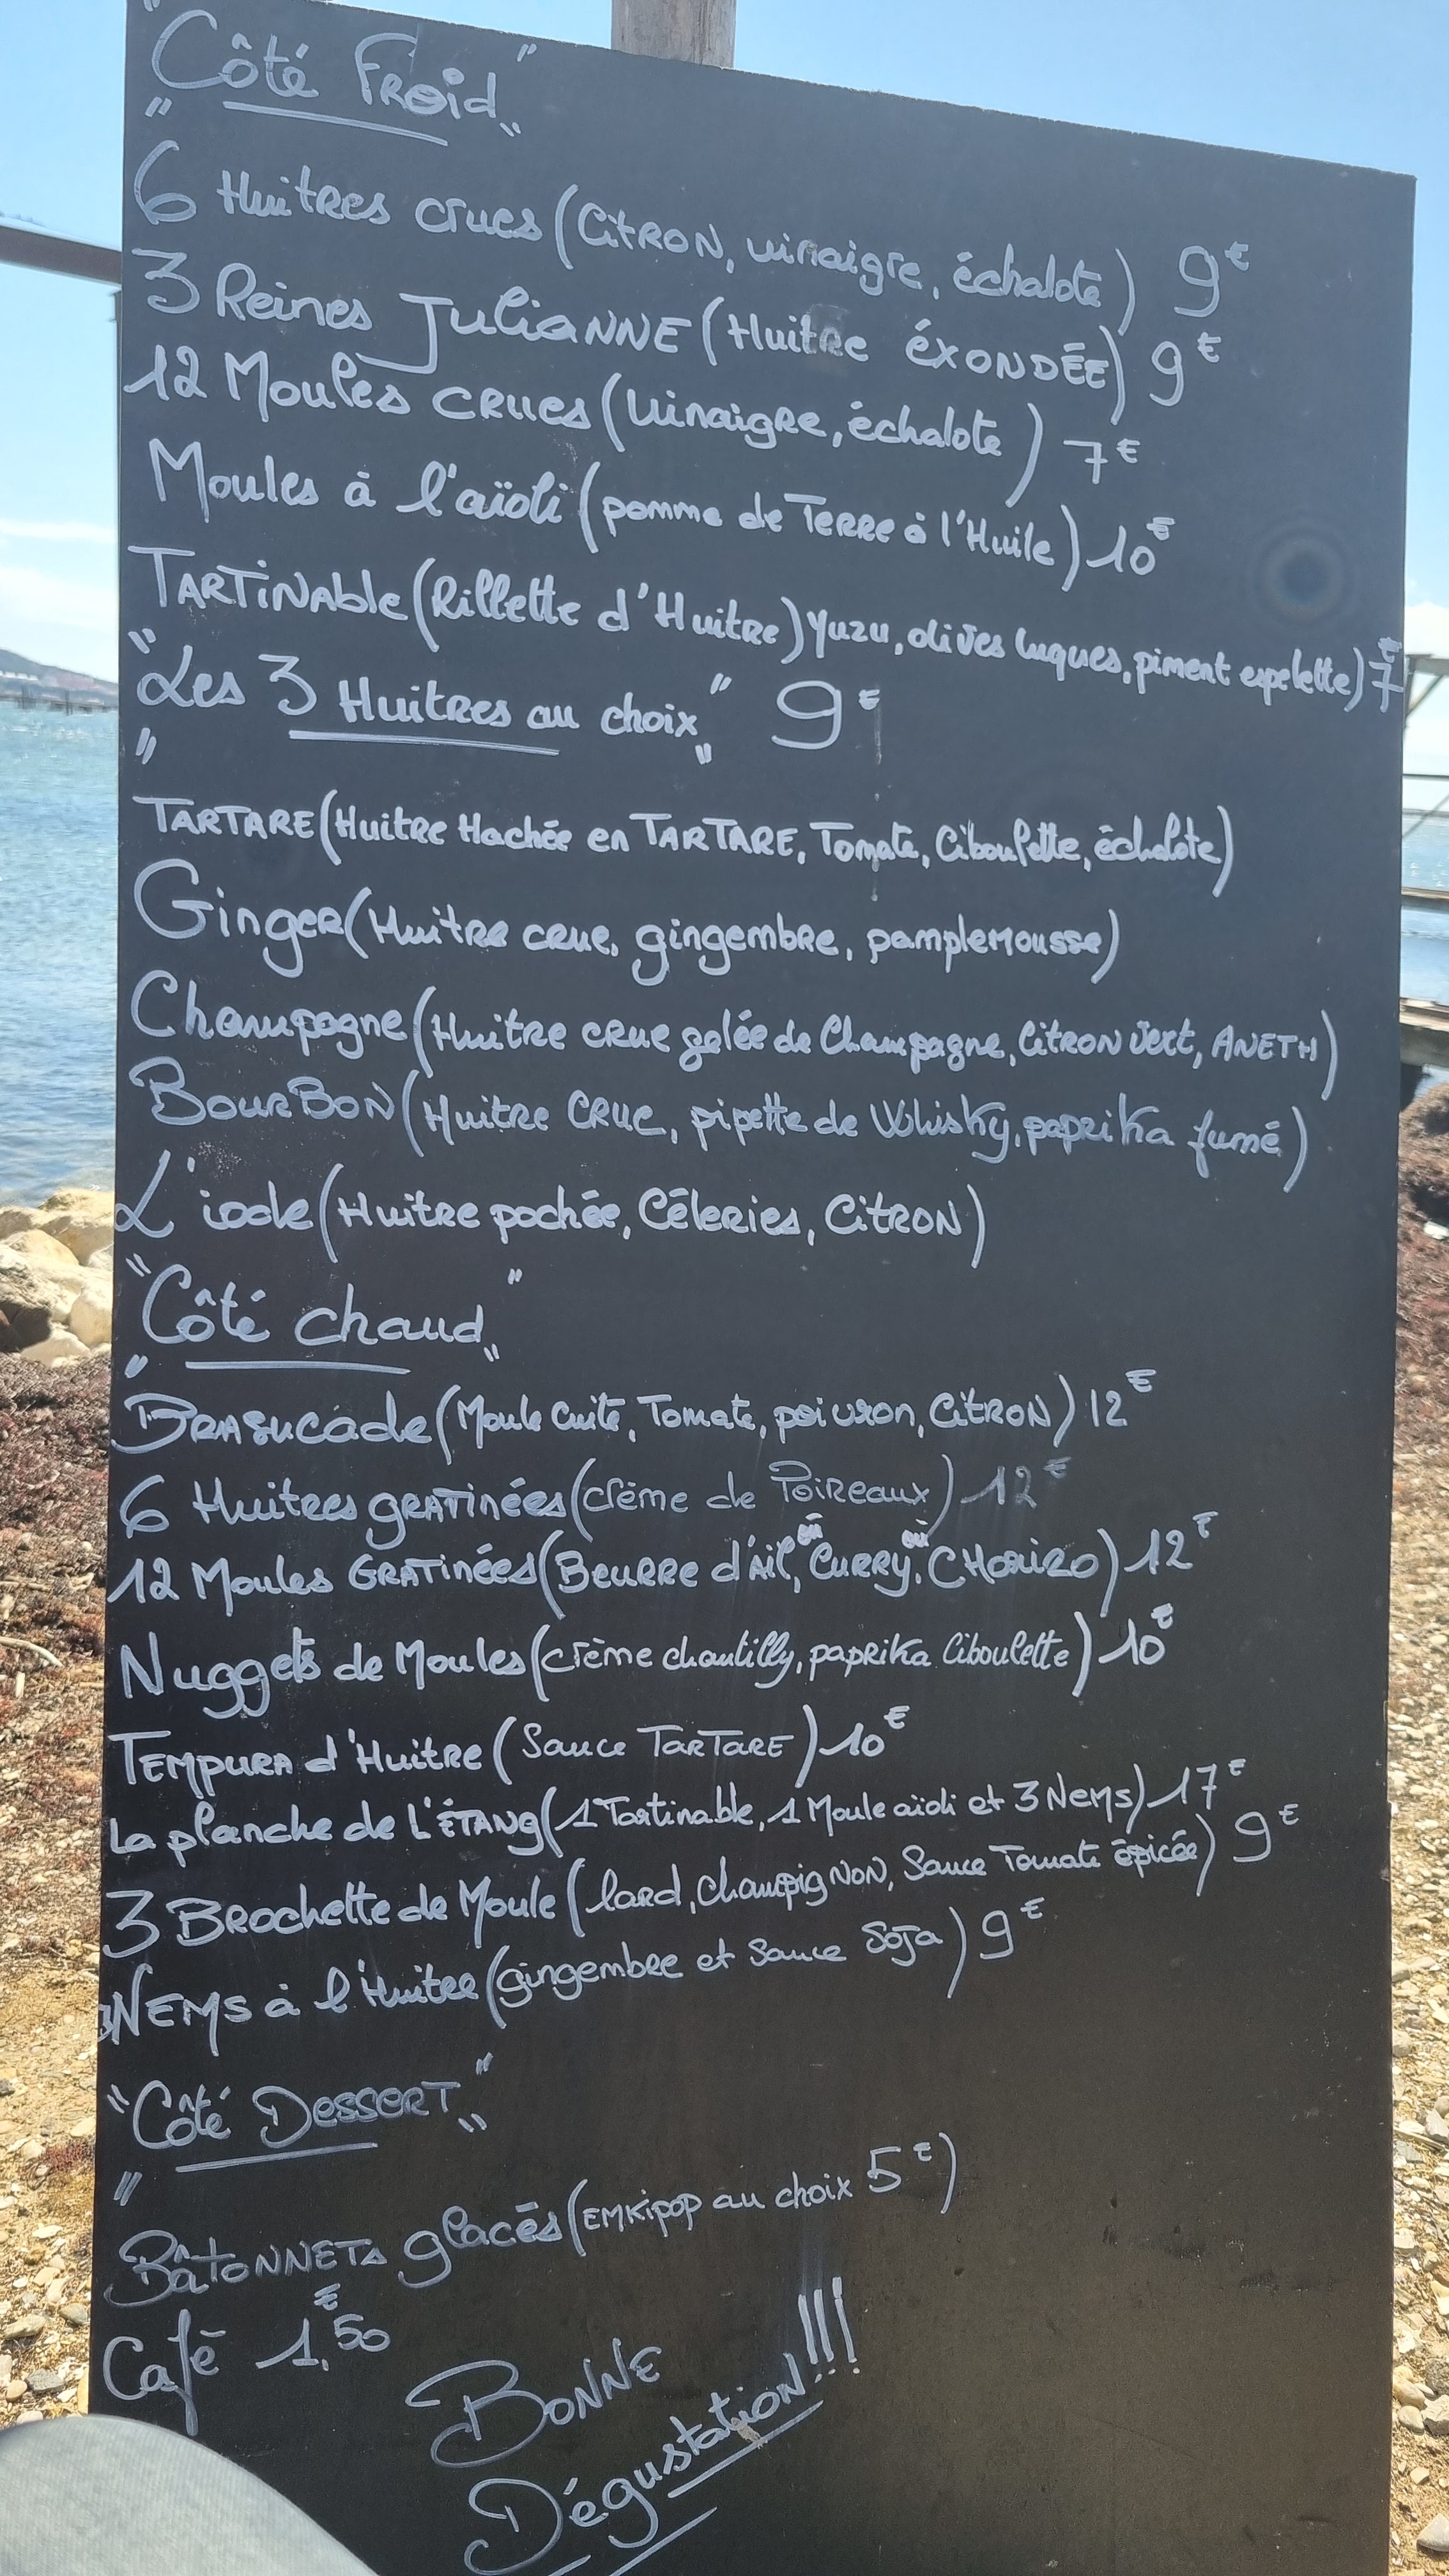 "Côté Froid"
6 Huitres crues (Citron, vinaigre, échalote) 9€
3 Reines Julianne (Huitre éxondée) 9€
12 Moules crues (Vinaigre, échalote) 7€
Moules à l'aïoli (pomme de Terre à l'Huile) 10€
Tartinable (Rillette d'Huitre) Yuzu, olives luques, piment espelette) 7€
"Les 3 Huitres au choix" 9€
Tartare (Huitre Hachée en Tartare, Tomate, Ciboulette, échalote)
Ginger (Huitre crue, gingembre, pamplemousse)
Champagne (Huitre crue gelée de Champagne, Citron vert, Aneth)
Bourbon (Huitre crue, pipette de Whisky, paprika fumé)
L'iode (Huitre pochée, Céleries, Citron)
"Côté chaud"
Brasucade (Moule Cuite, Tomate, poivron, Citron) 12€
6 Huitres gratinées (crème de Poireaux) 12€
12 Moules Gratinées (Beurre d'Ail, ou Curry, ou Chorizo) 12€
Nuggets de Moules (crème chantilly, paprika Ciboulette) 10€
Tempura d'Huitre (Sauce Tartare) 10€
La planche de l'Étang (1 Tartinable, 1 Moule aïoli et 3 Nems) 17€
3 Brochette de Moule (lard, Champignon, Sauce Tomate épicée) 9€
3 Nems à l'Huitre (gingembre et Sauce Soja) 9€
"Côté Dessert"
Bâtonnets glacés (Emkipop au choix 5€)
Café 1,€50
Bonne
Dégustation!!!